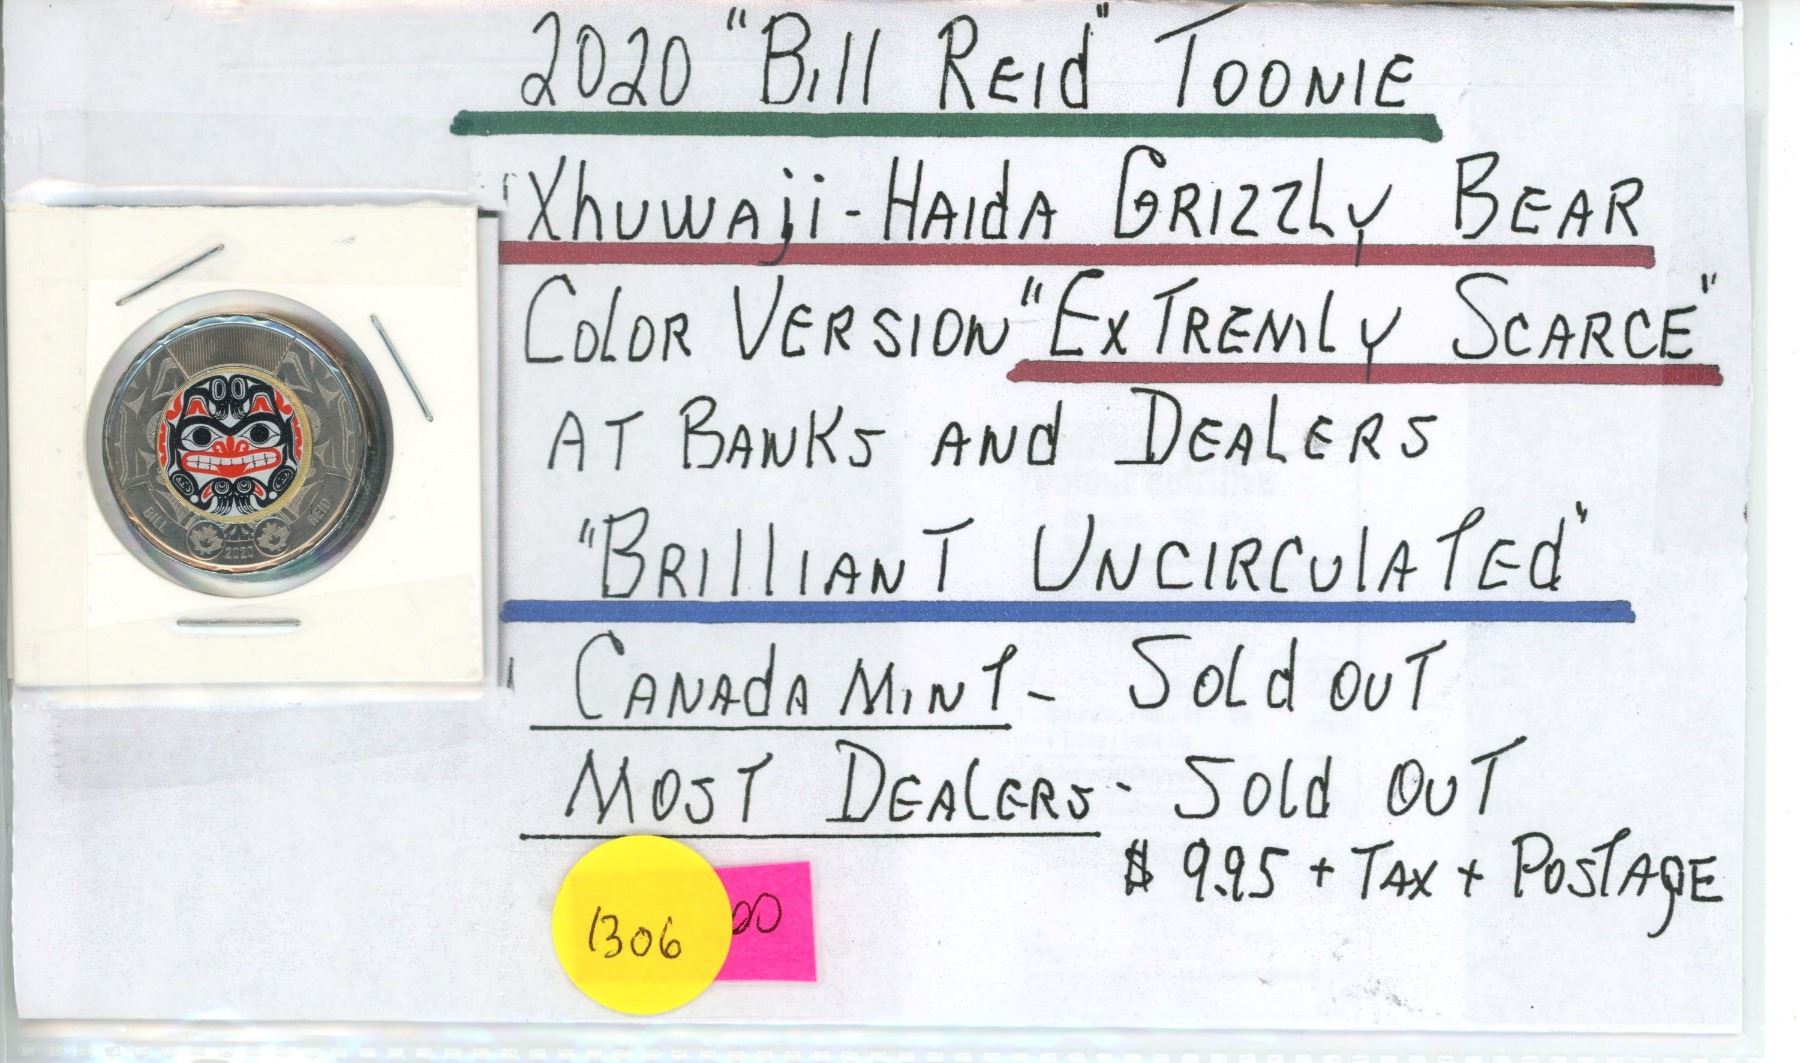 2020 "Bill Reid" Toonie
"Xhuwaji - Haida Grizzly Bear
Color Version "Extremly Scarce"
at Banks and Dealers
"Brilliant Uncirculated"
Canada Mint - Sold out
Most Dealers - Sold out
$ 9.95 + Tax + Postage
1306
00
BILL REID
2020